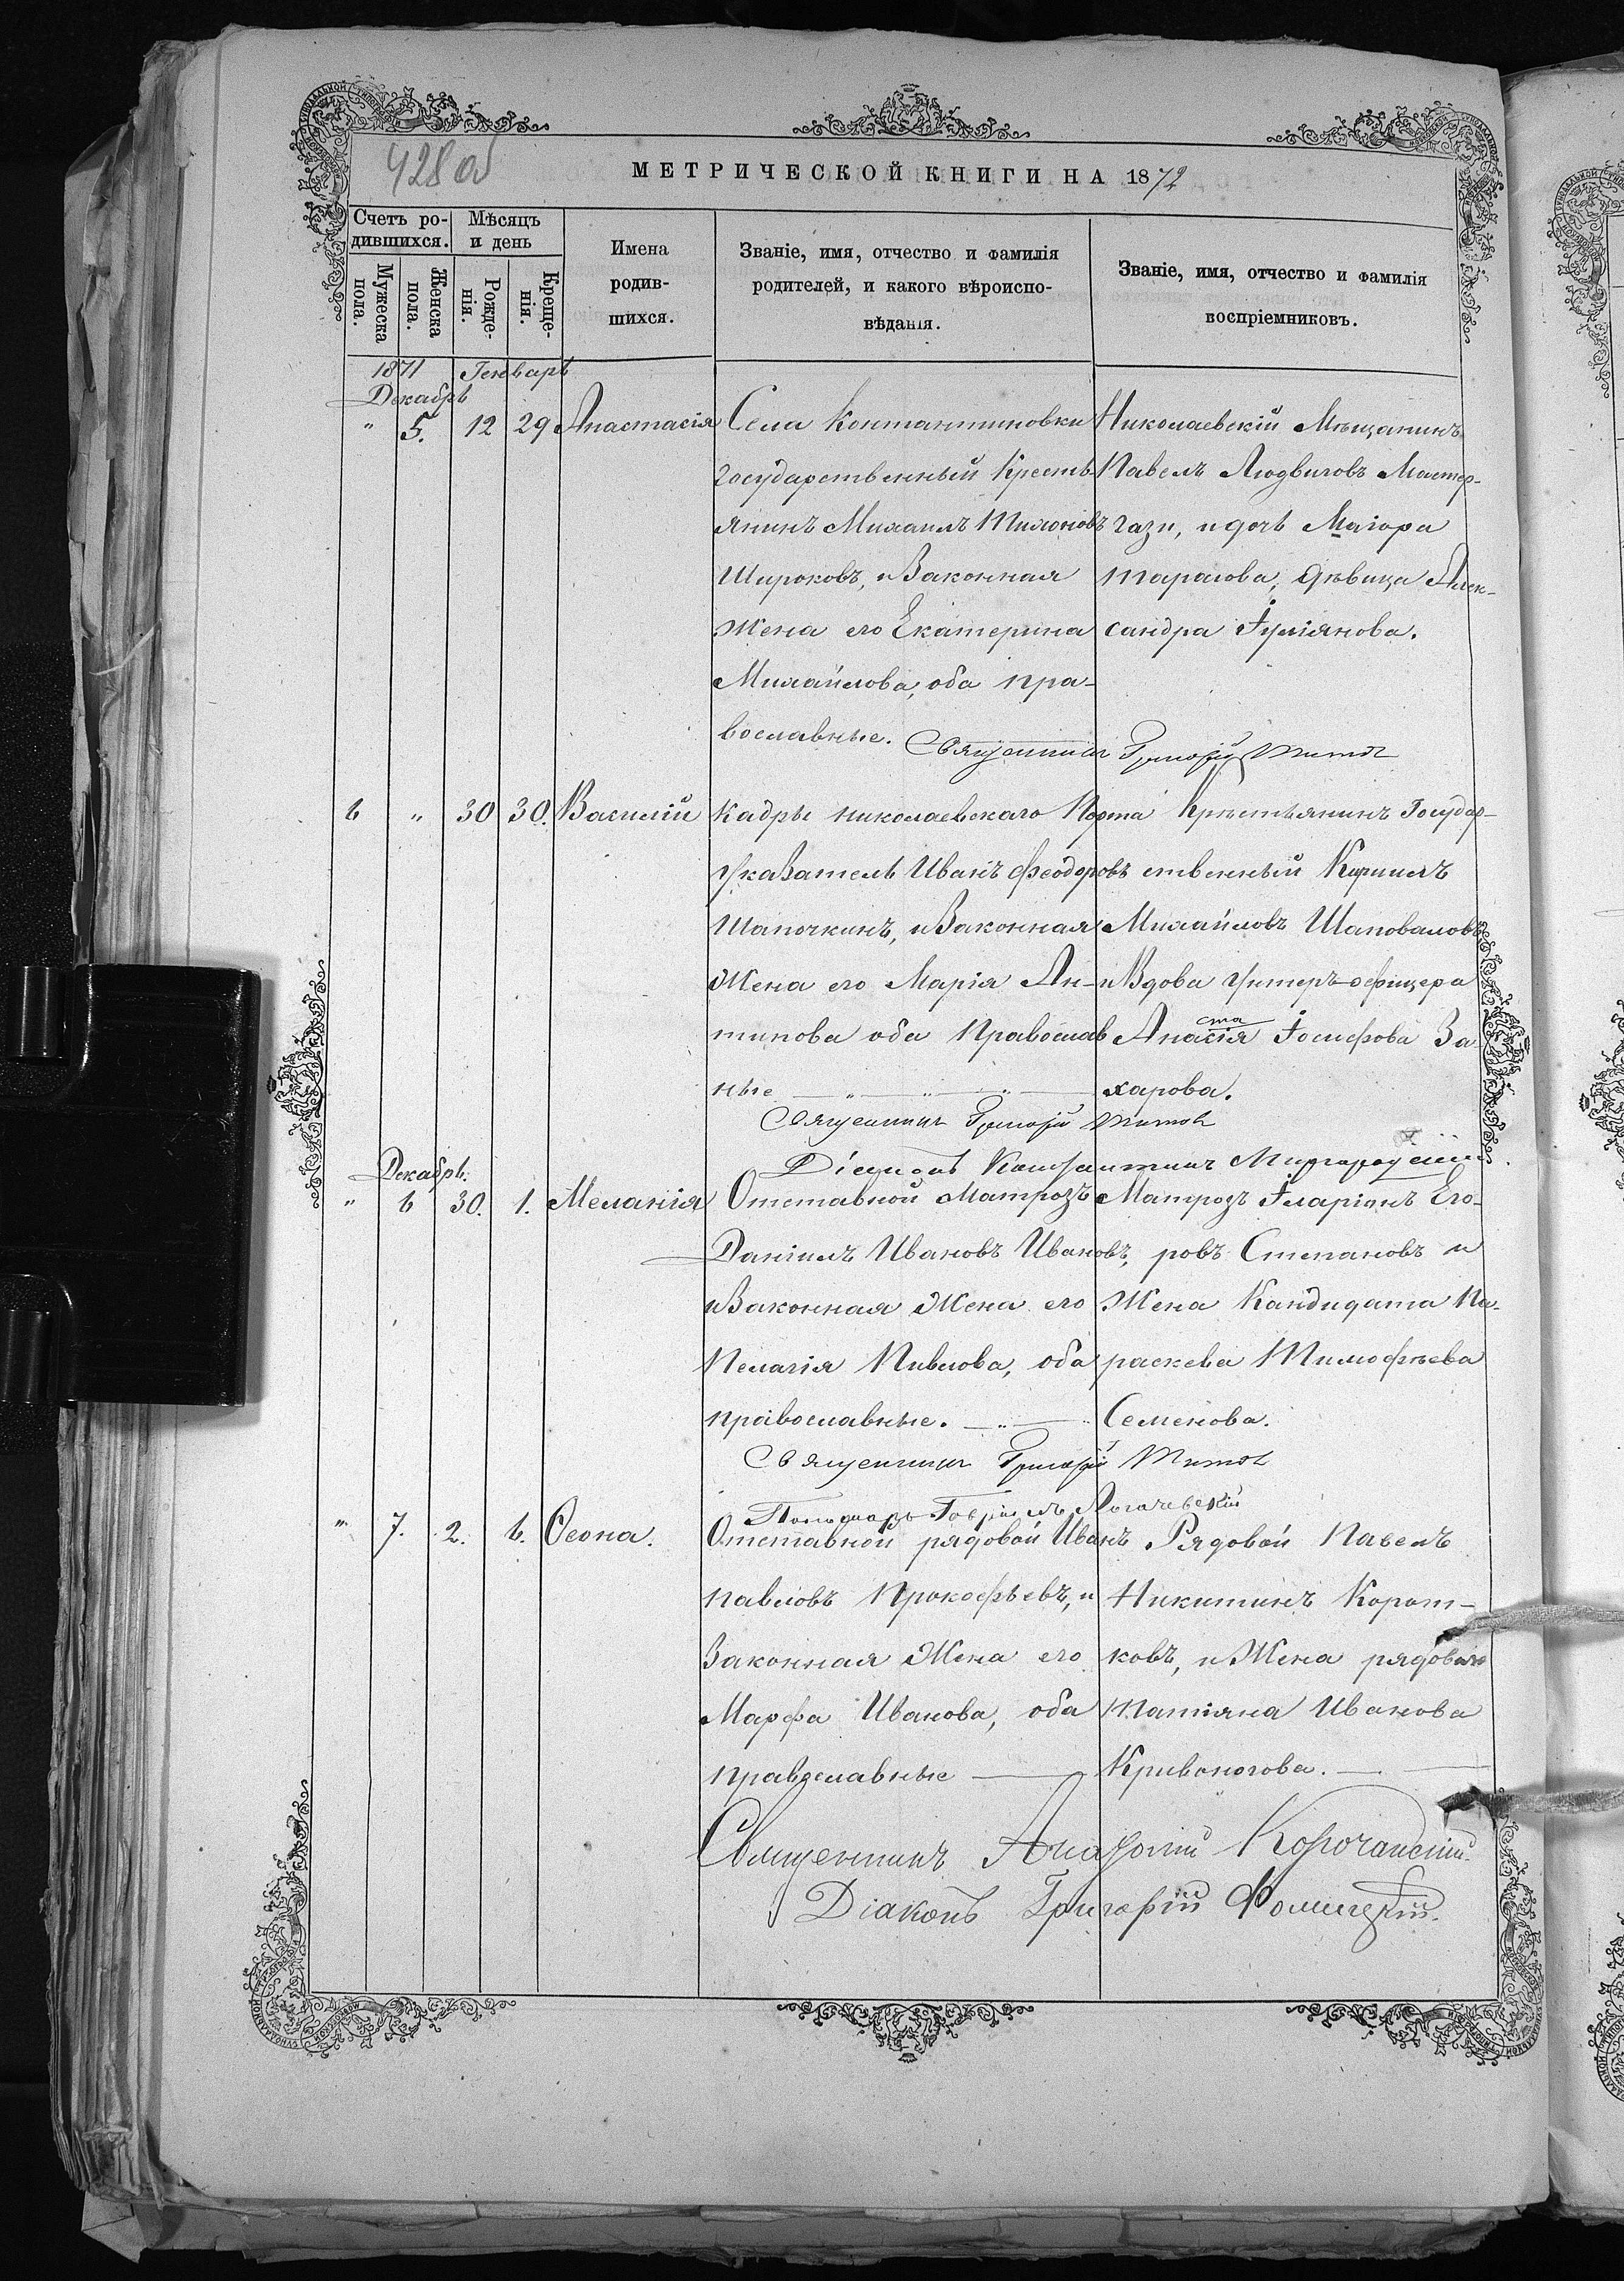 428 об
МЕТРИЧЕСКОЙ КНИГИ НА 1872
Счетъ ро-
дившихся.
Мѣсяцъ
и день
Мужеска
пола.
Женска
пола.
Рожде-
нія.
Креще-
нія.
Имена
родив-
шихся.
Званіе, имя, отчество и фамилія
родителей, и какого вѣроиспо-
вѣданія.
Званіе, имя, отчество и фамилія
воспріемниковъ.
1871 Генварь
Декабрь
" 5. 12 29 Анастасія
Села Контантиновки
государственный кресть-
янинъ Михаилъ Тихоновъ
Широковъ, и Законная
Жена его Екатерина
Михайлова, оба пра-
вославные.
Николаевскій Мѣщанинъ
Павелъ Людвиговъ Мастер-
гази, и дочь Маіора
тарасова, дѣвица Алек-
сандра Іуліянова.
Священникъ Григорій Титов
6 " 30 30. Василій
Кадры николаевскаго Порта
Указатель Иванъ Феодоровъ
Шапочкинъ, и Законная
Жена его Марія Ан-
типова оба Православ
ные
Крестьянинъ Государ-
ственный Кириллъ
Михайловъ Шаповаловъ
и Вдова Унтеръ-офицера
Анастасія Іосифова За
харова.
Священникъ Григорій Титов
Діаконъ Константинъ
Декабрь.
" 6 30. 1. Меланія
Отставной Матрозъ
Даніилъ Ивановъ Ивановъ,
и Законная Жена его
Пелагія Павлова, оба
православные.
Матрозъ Іларіонъ Его-
ровъ Степановъ и
Жена Кандидата Па-
раскева Тимофѣева
Семенова.
Священникъ Григорій Титов
Пономарь Гавріилъ Логачевскій
" 7. 2. 6. Ѳеона.
Отставной рядовой Иванъ
павловъ Прокофьевъ, и
Законная Жена его
Марфа Иванова, оба
православные
Рядовой Павелъ
Никитинъ Корот-
ковъ, и Жена рядоваго
Татіяна Иванова
Кривоногова.
Священникъ Анатолій Корочанскій
Діаконъ Григорій